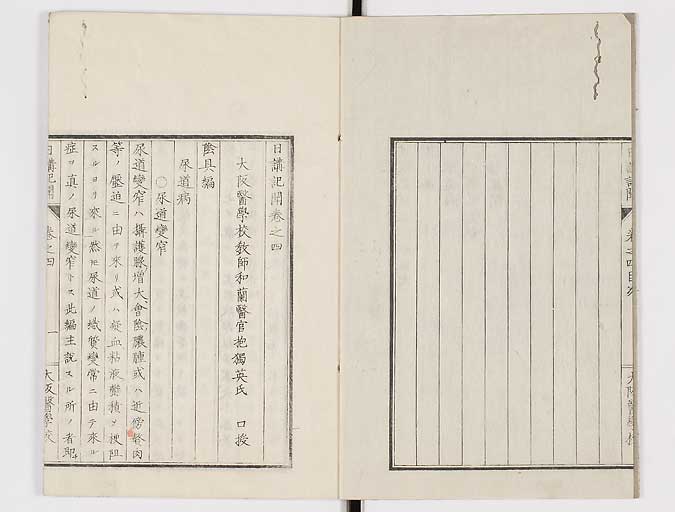 卷之四目次
大阪醫學校
日講記聞卷之四
大阪醫學校敎師和蘭醫官抱獨英氏 口授
陰具編
尿道病
○尿道變窄
尿道變窄ハ攝護腺增大、會陰膿腫或ハ近傍 肉
等ノ壓迫ニ由テ來リ或ハ凝血粘液鬱積ヲ梗阻
スルヨリ來ル然𪜈尿道ノ織質變常ニ由テ來ル
症ヲ真ノ尿道變窄トス此編主説スル所ノ者即
日講記聞
卷之四
一
大阪醫學校